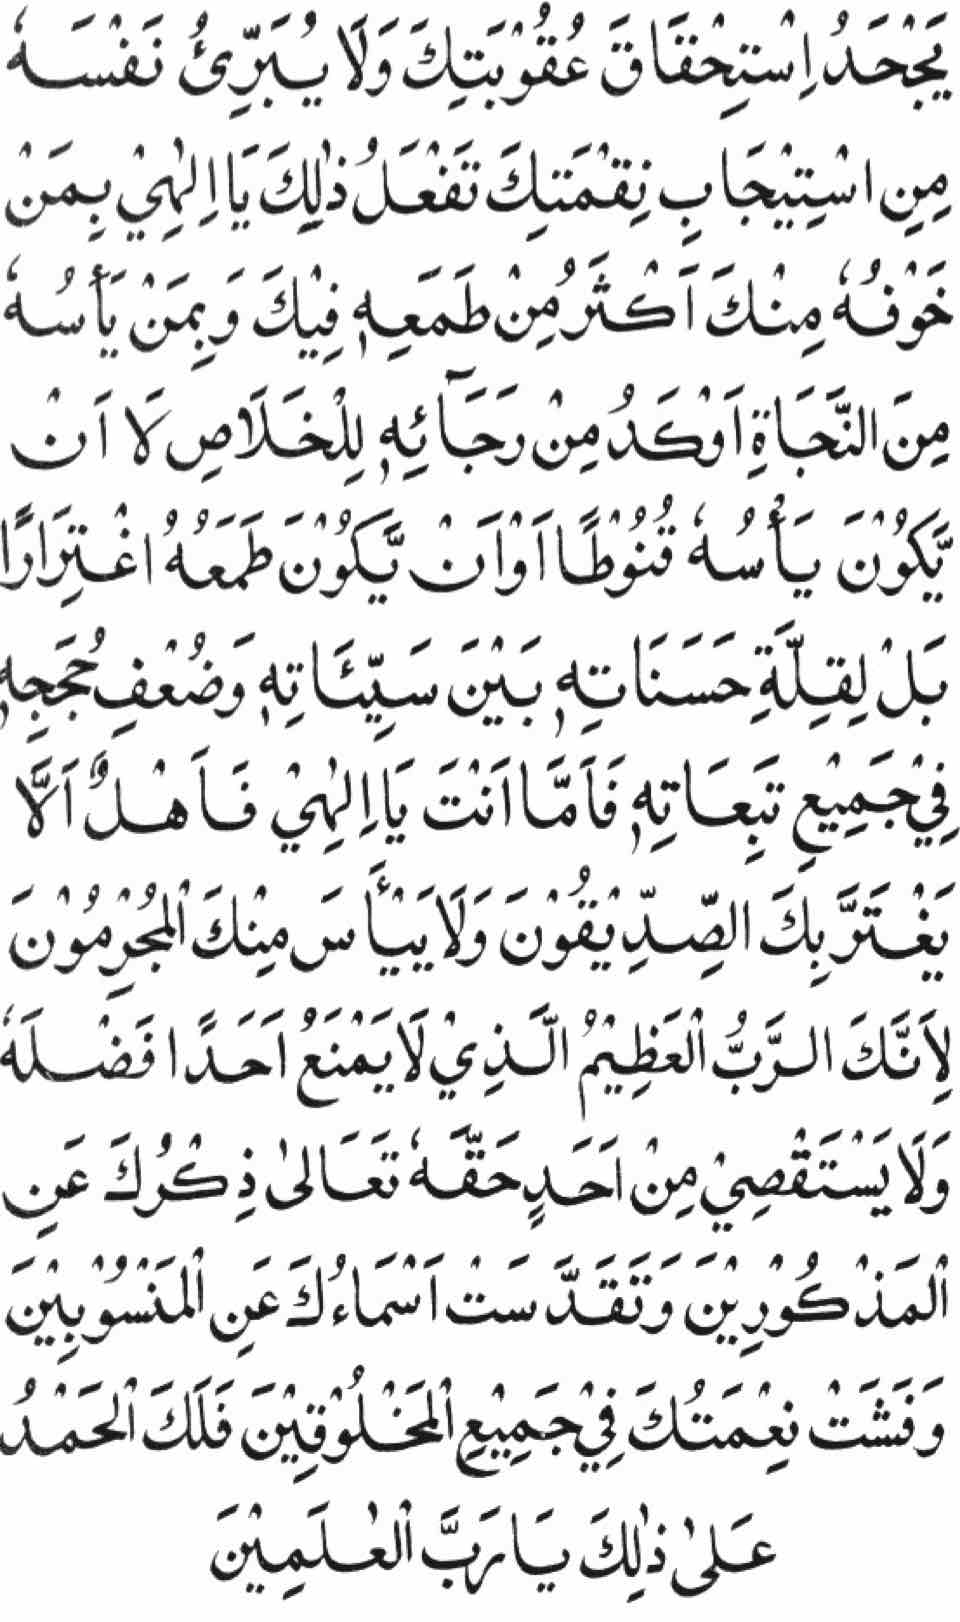 يَجْحَدُ اِسْتِحْقَاقَ عُقُوْبَتِكَ وَلَا يُبَرِّئُ نَفْسَهٗ
مِنِ اسْتِيْجَابِ نِقْمَتِكَ تَفْعَلُ ذٰلِكَ يَا اِلٰهِيْ بِمَنْ
خَوْفُهٗ مِنْكَ اَكْثَرُ مِنْ طَمَعِهٖ فِيْكَ وَبِمَنْ يَأْسُهٗ
مِنَ النَّجَاةِ اَوْكَدُ مِنْ رَجَآئِهٖ لِلْخَلَاصِ لَا اَنْ
يَّكُوْنَ يَأْسُهٗ قُنُوْطًا اَوْ اَنْ يَّكُوْنَ طَمَعُهُ اغْتِرَارًا
بَلْ لِقِلَّةِ حَسَنَاتِهٖ بَيْنَ سَيِّئَاتِهٖ وَضُعْفِ حُجَجِهٖ
فِيْ جَمِيْعِ تَبِعَاتِهٖ فَاَمَّا اَنْتَ يَا اِلٰهِيْ فَاَهْلٌ اَلَّا
يَغْتَرَّ بِكَ الصِّدِّيْقُوْنَ وَلَا يَيْأَسَ مِنْكَ الْمُجْرِمُوْنَ
لِاَنَّكَ الرَّبُّ الْعَظِيْمُ الَّذِيْ لَا يَمْنَعُ اَحَدًا فَضْلَهٗ
وَلَا يَسْتَقْصِيْ مِنْ اَحَدٍ حَقَّهٗ تَعَالٰى ذِكْرُكَ عَنِ
الْمَذْكُوْرِيْنَ وَتَقَدَّسَتْ اَسْمَاءُكَ عَنِ الْمَنْسُوْبِيْنَ
وَفَشَتْ نِعْمَتُكَ فِيْ جَمِيْعِ الْمَخْلُوْقِيْنَ فَلَكَ الْحَمْدُ
عَلٰى ذٰلِكَ يَا رَبَّ الْعٰلَمِيْنَ